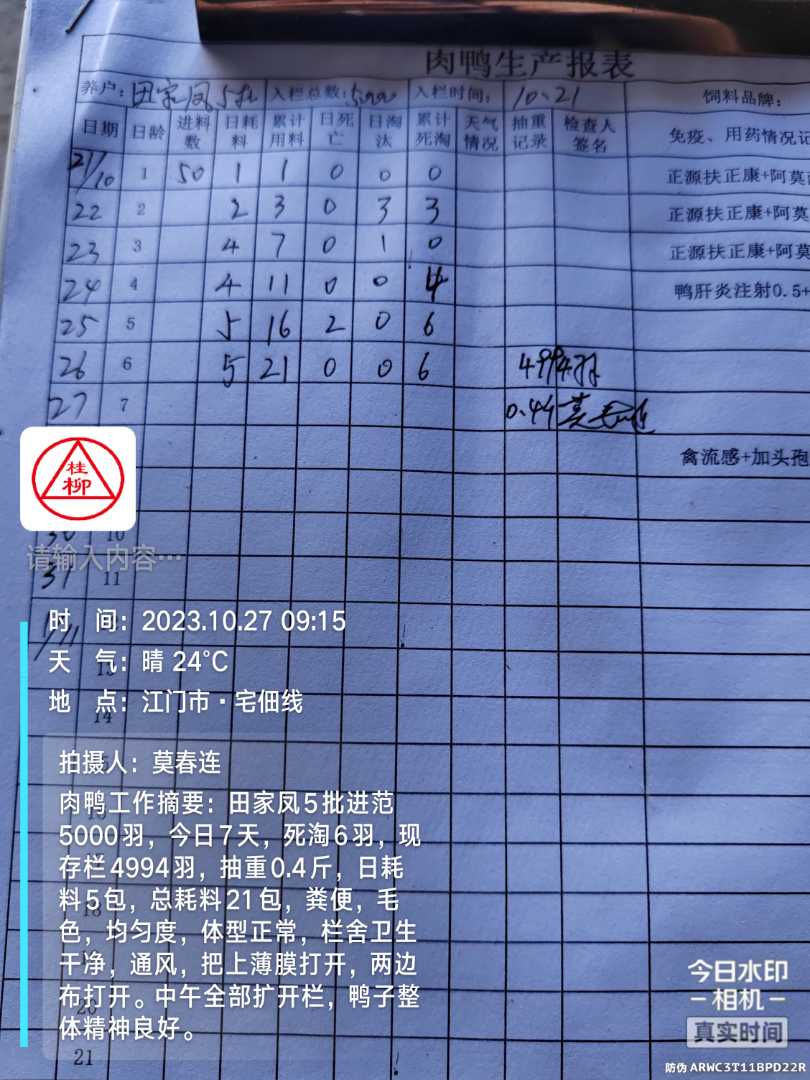 肉鸭生产报表
养户：田家凤5批 入栏总数：5000 入栏时间：10.21 饲料品牌：
日期 日龄 进料数 日耗料 累计用料 日死亡 日淘汰 累计死淘 天气情况 抽重记录 检查人签名 免疫、用药情况记
21/10 1 50 1 1 0 0 0 正源扶正康+阿莫
22 2 2 3 0 3 3 正源扶正康+阿莫
23 3 4 7 0 1 0 正源扶正康+阿莫
24 4 4 11 0 0 4 鸭肝炎注射0.5+
25 5 5 16 2 0 6
26 6 5 21 0 0 6 4994羽
27 7 0.4斤
禽流感+加头孢
桂柳
30 10
请输入内容…
31 11
时 间：2023.10.27 09:15
1/11
天 气：晴 24℃
13
地 点：江门市·宅佃线
14
拍摄人：莫春连
肉鸭工作摘要：田家凤5批进范
5000羽，今日7天，死淘6羽，现
存栏4994羽，抽重0.4斤，日耗
料5包，总耗料21包，粪便，毛
色，均匀度，体型正常，栏舍卫生
干净，通风，把上薄膜打开，两边
布打开。中午全部扩开栏，鸭子整
体精神良好。
18
20
21
今日水印
相机
真实时间
防伪 ARWC3T11BPD22R